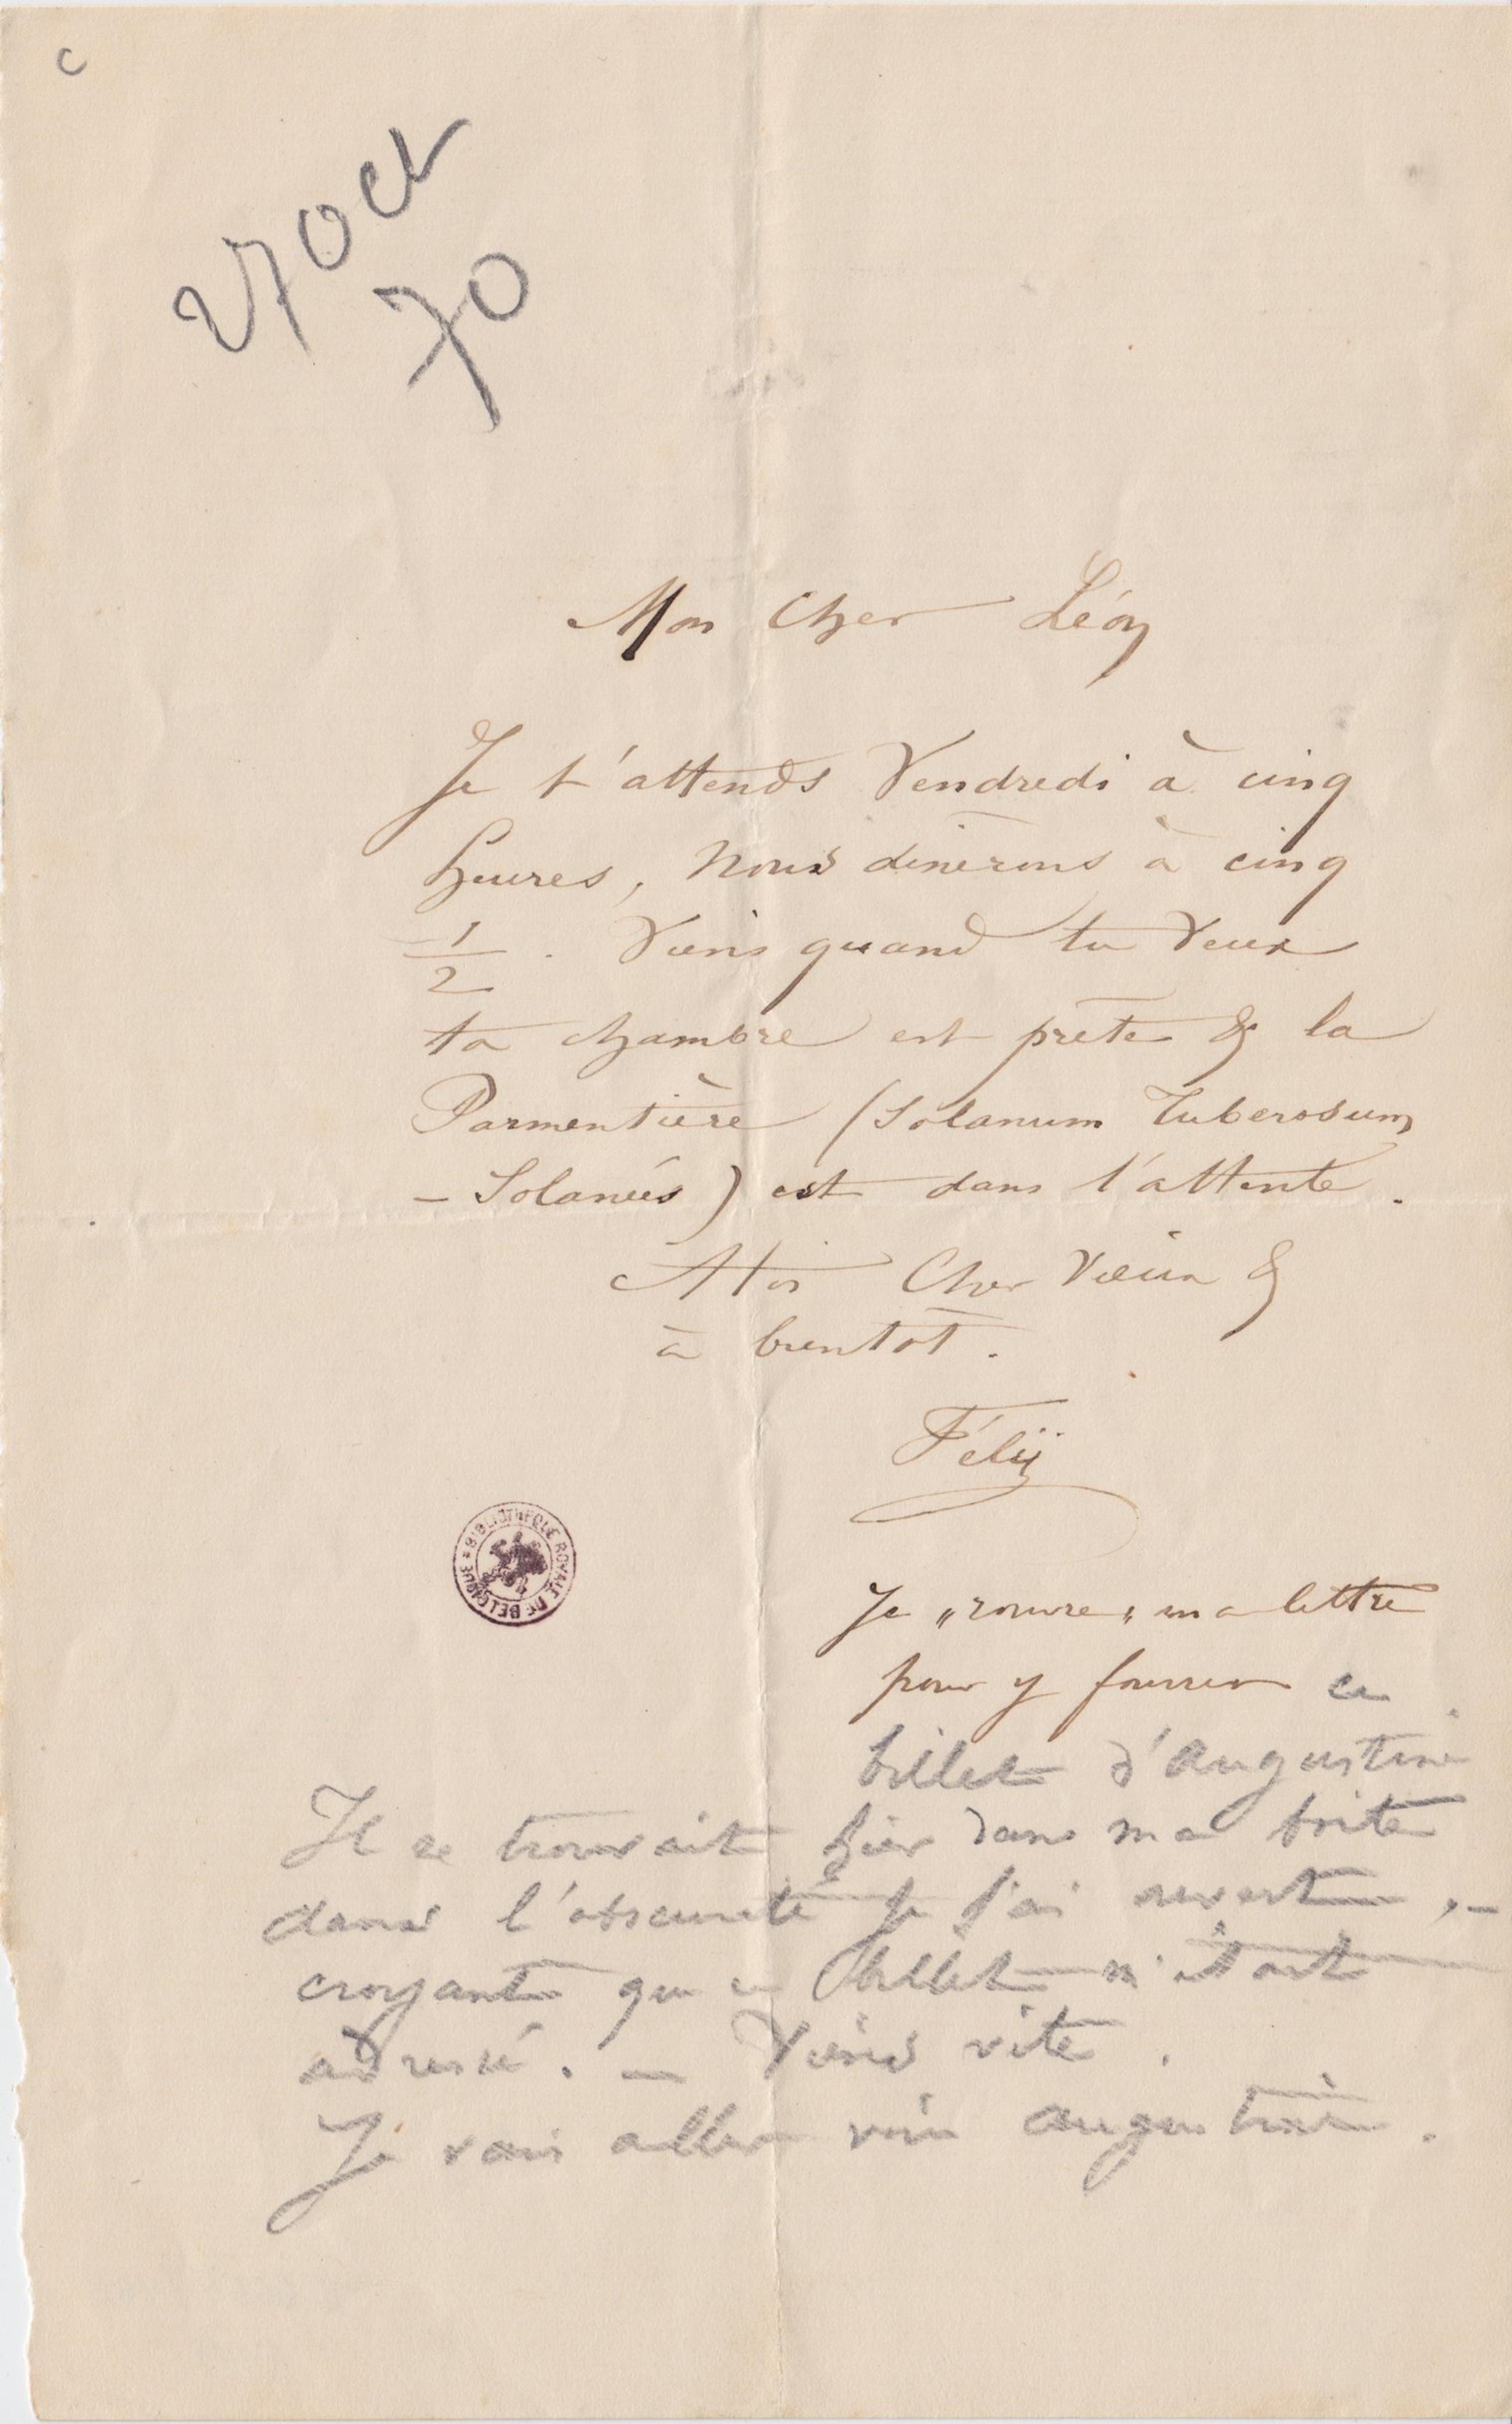 C
27 Oct
70
Mon Cher Léon
Je t'attends Vendredi à cinq
heures, Nous dinerons à cinq
1/2. Viens quand tu Veux
ta chambre est prête & la
Parmentière (Solanum Tuberosum
– Solanées) est dans l'attente.
A toi Cher Vieux &
à bientôt.
Félix
BIBLIOTHÈQUE ROYALE DE BELGIQUE
Je „rouvre„ ma lettre
pour y fourrer ce
billet d'Augustine
Il se trouvait hier dans ma boite
dans l'obscurité Je l'ai ouvert, –
croyant que ce billet m'était
adressé. – Viens vite.
Je vais aller voir Augustine.